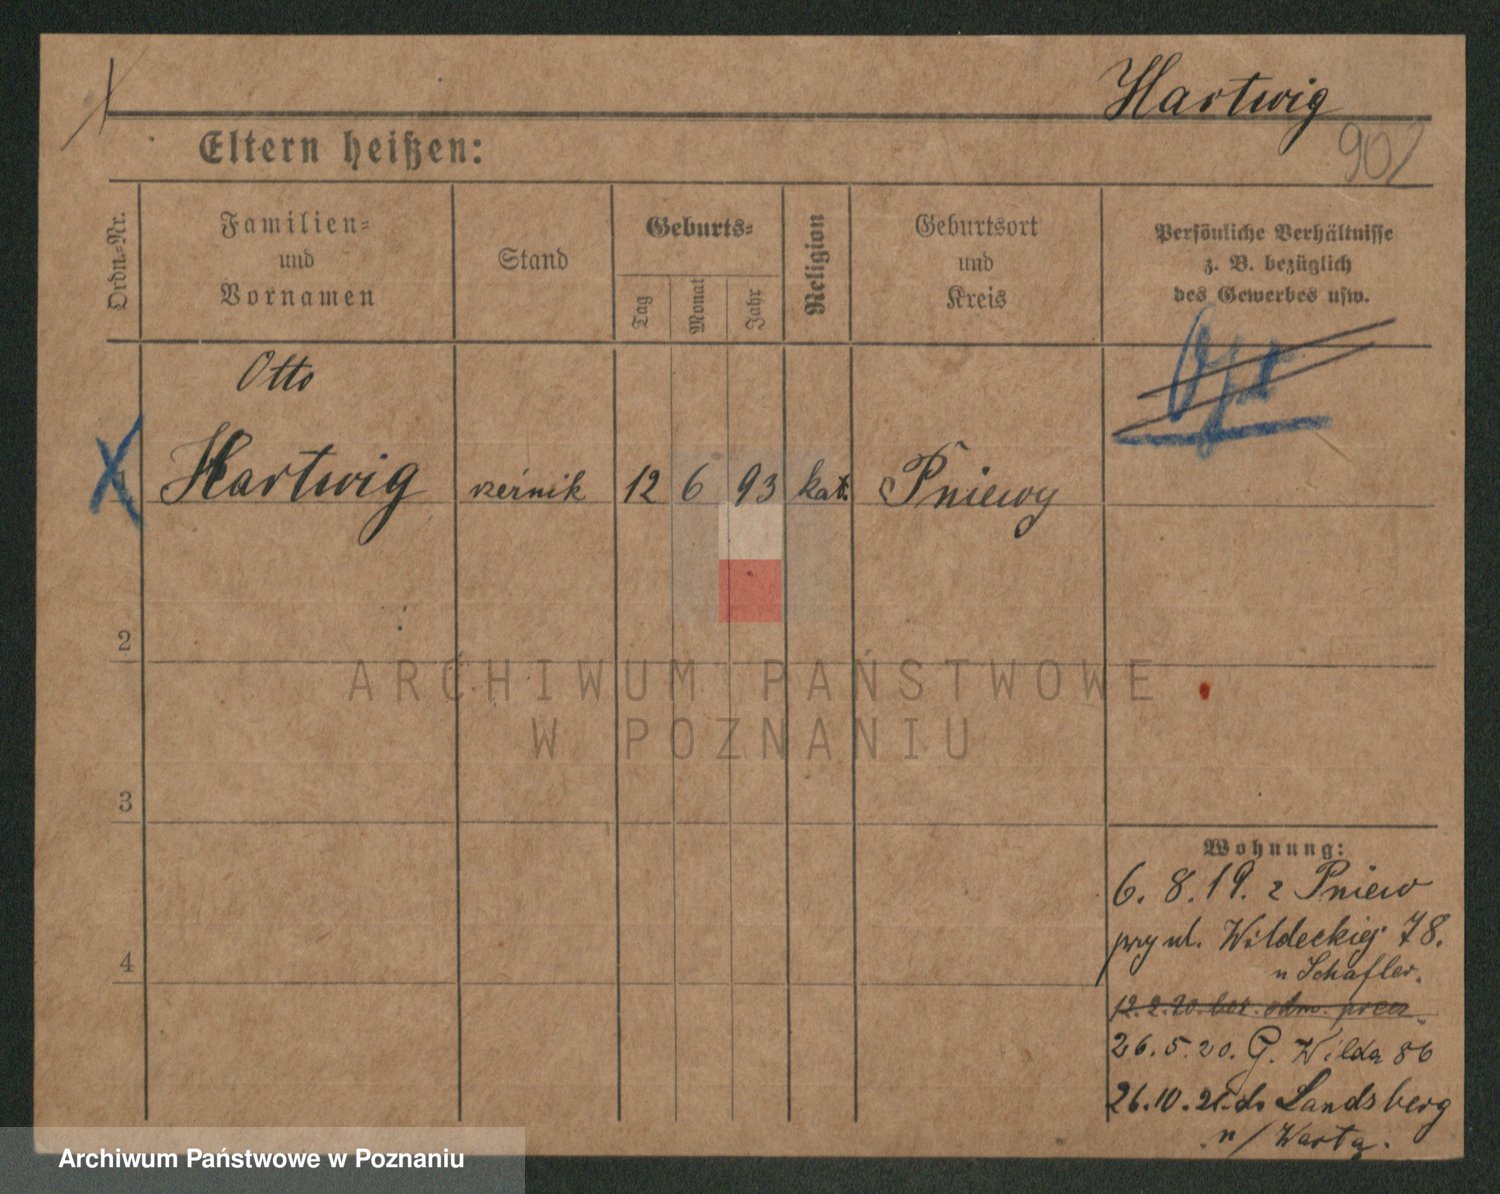 Hartwig
902
Eltern heißen:
Ordn.-Nr.
Familien-
und
Vornamen
Stand
Geburts-
Tag
Monat
Jahr
Religion
Geburtsort
und
Kreis
Persönliche Verhältnisse
z. B. bezüglich
des Gewerbes usw.
Otto
1 Hartwig rzeźnik 12 6 93 kat. Pniewy
2
3
4
ARCHIWUM PAŃSTWOWE
W POZNANIU
Wohnung:
6. 8. 19. z Pniew
przy ul. Wildeckiej 78.
u Schafler.
12. 2. 20. bez. odm.
26. 5. 20. G. Wilda 86
26. 10. 21. do Landsberg
n/Wartą.
Archiwum Państwowe w Poznaniu